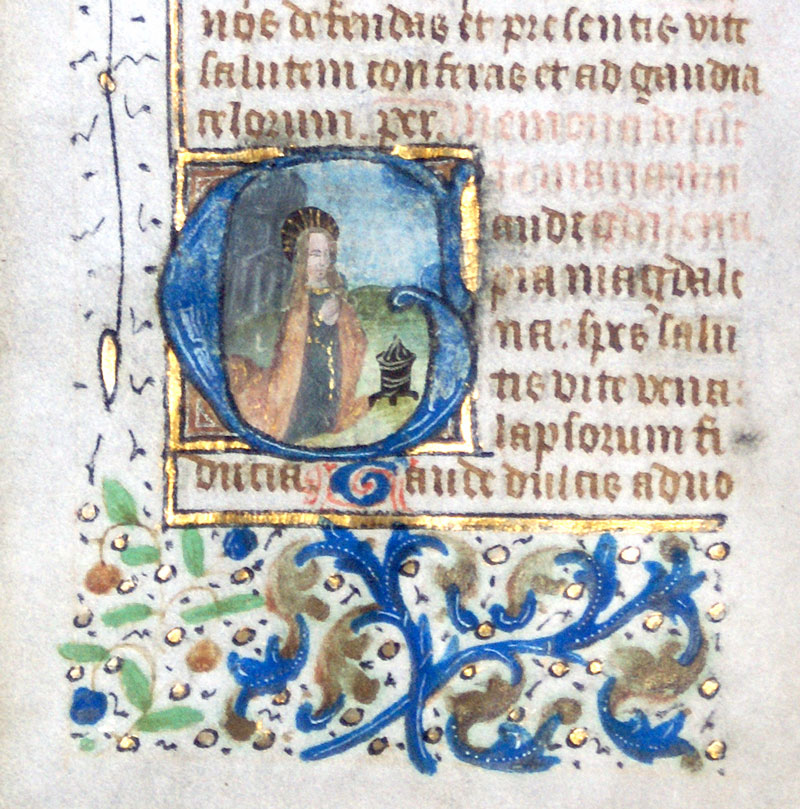 nos defendas et presentis vite
salutem conferas et ad gaudia
celorum. per. Memoria de sancte
maria ma
Gaude
pia magdale
na. spes salu
tis vite vena.
lapsorum fi
ducia. Gaude dulcis advo